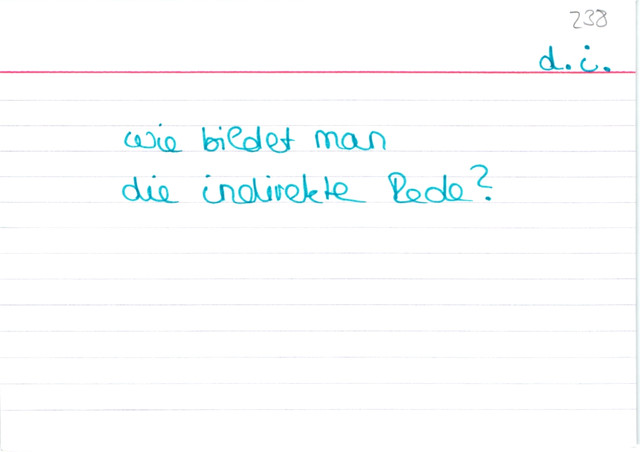 238
d.i.
wie bildet man
die indirekte Rede?